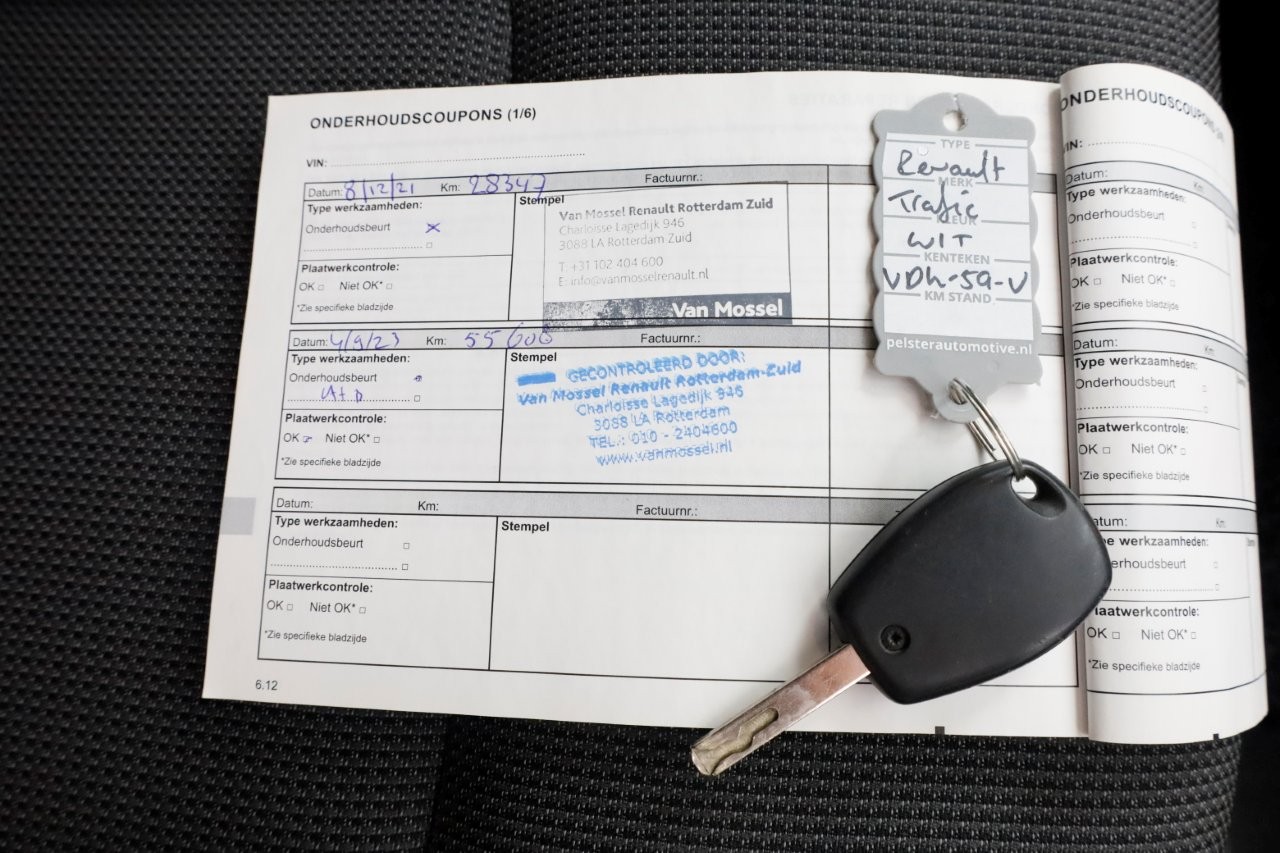 ONDERHOUDSCOUPONS (1/6)
VIN:
Datum: 8/12/21 Km: 28347 Factuurnr.:
Type werkzaamheden:
Onderhoudsbeurt x
Plaatwerkcontrole:
OK □ Niet OK* □
*Zie specifieke bladzijde
Stempel
Van Mossel Renault Rotterdam Zuid
Charloisse Lagedijk 946
3088 LA Rotterdam-Zuid
T: +31 102 404 600
E: info@vanmosselrenault.nl
Van Mossel
Datum: 4/9/23 Km: 55600 Factuurnr.:
Type werkzaamheden:
Onderhoudsbeurt
Plaatwerkcontrole:
OK Niet OK* □
*Zie specifieke bladzijde
Stempel
GECONTROLEERD DOOR:
Van Mossel Renault Rotterdam-Zuid
Charloisse Lagedijk 946
3088 LA Rotterdam
TEL.: 010 - 2404600
www.vanmossel.nl
Datum: Km: Factuurnr.:
Type werkzaamheden:
Onderhoudsbeurt □
Plaatwerkcontrole:
OK □ Niet OK* □
*Zie specifieke bladzijde
Stempel
6.12
TYPE
Renault
MERK
Trafic
KLEUR
WIT
KENTEKEN
VDH-59-V
KM STAND
pelsterautomotive.nl
ONDERHOUDSCOUPONS
VIN:
Datum: Km:
Type werkzaamheden:
Onderhoudsbeurt □
Plaatwerkcontrole:
OK □ Niet OK* □
*Zie specifieke bladzijde
Datum: Km:
Type werkzaamheden:
Onderhoudsbeurt □
Plaatwerkcontrole:
OK □ Niet OK* □
*Zie specifieke bladzijde
atum: Km:
pe werkzaamheden:
derhoudsbeurt □
laatwerkcontrole:
OK □ Niet OK* □
*Zie specifieke bladzijde